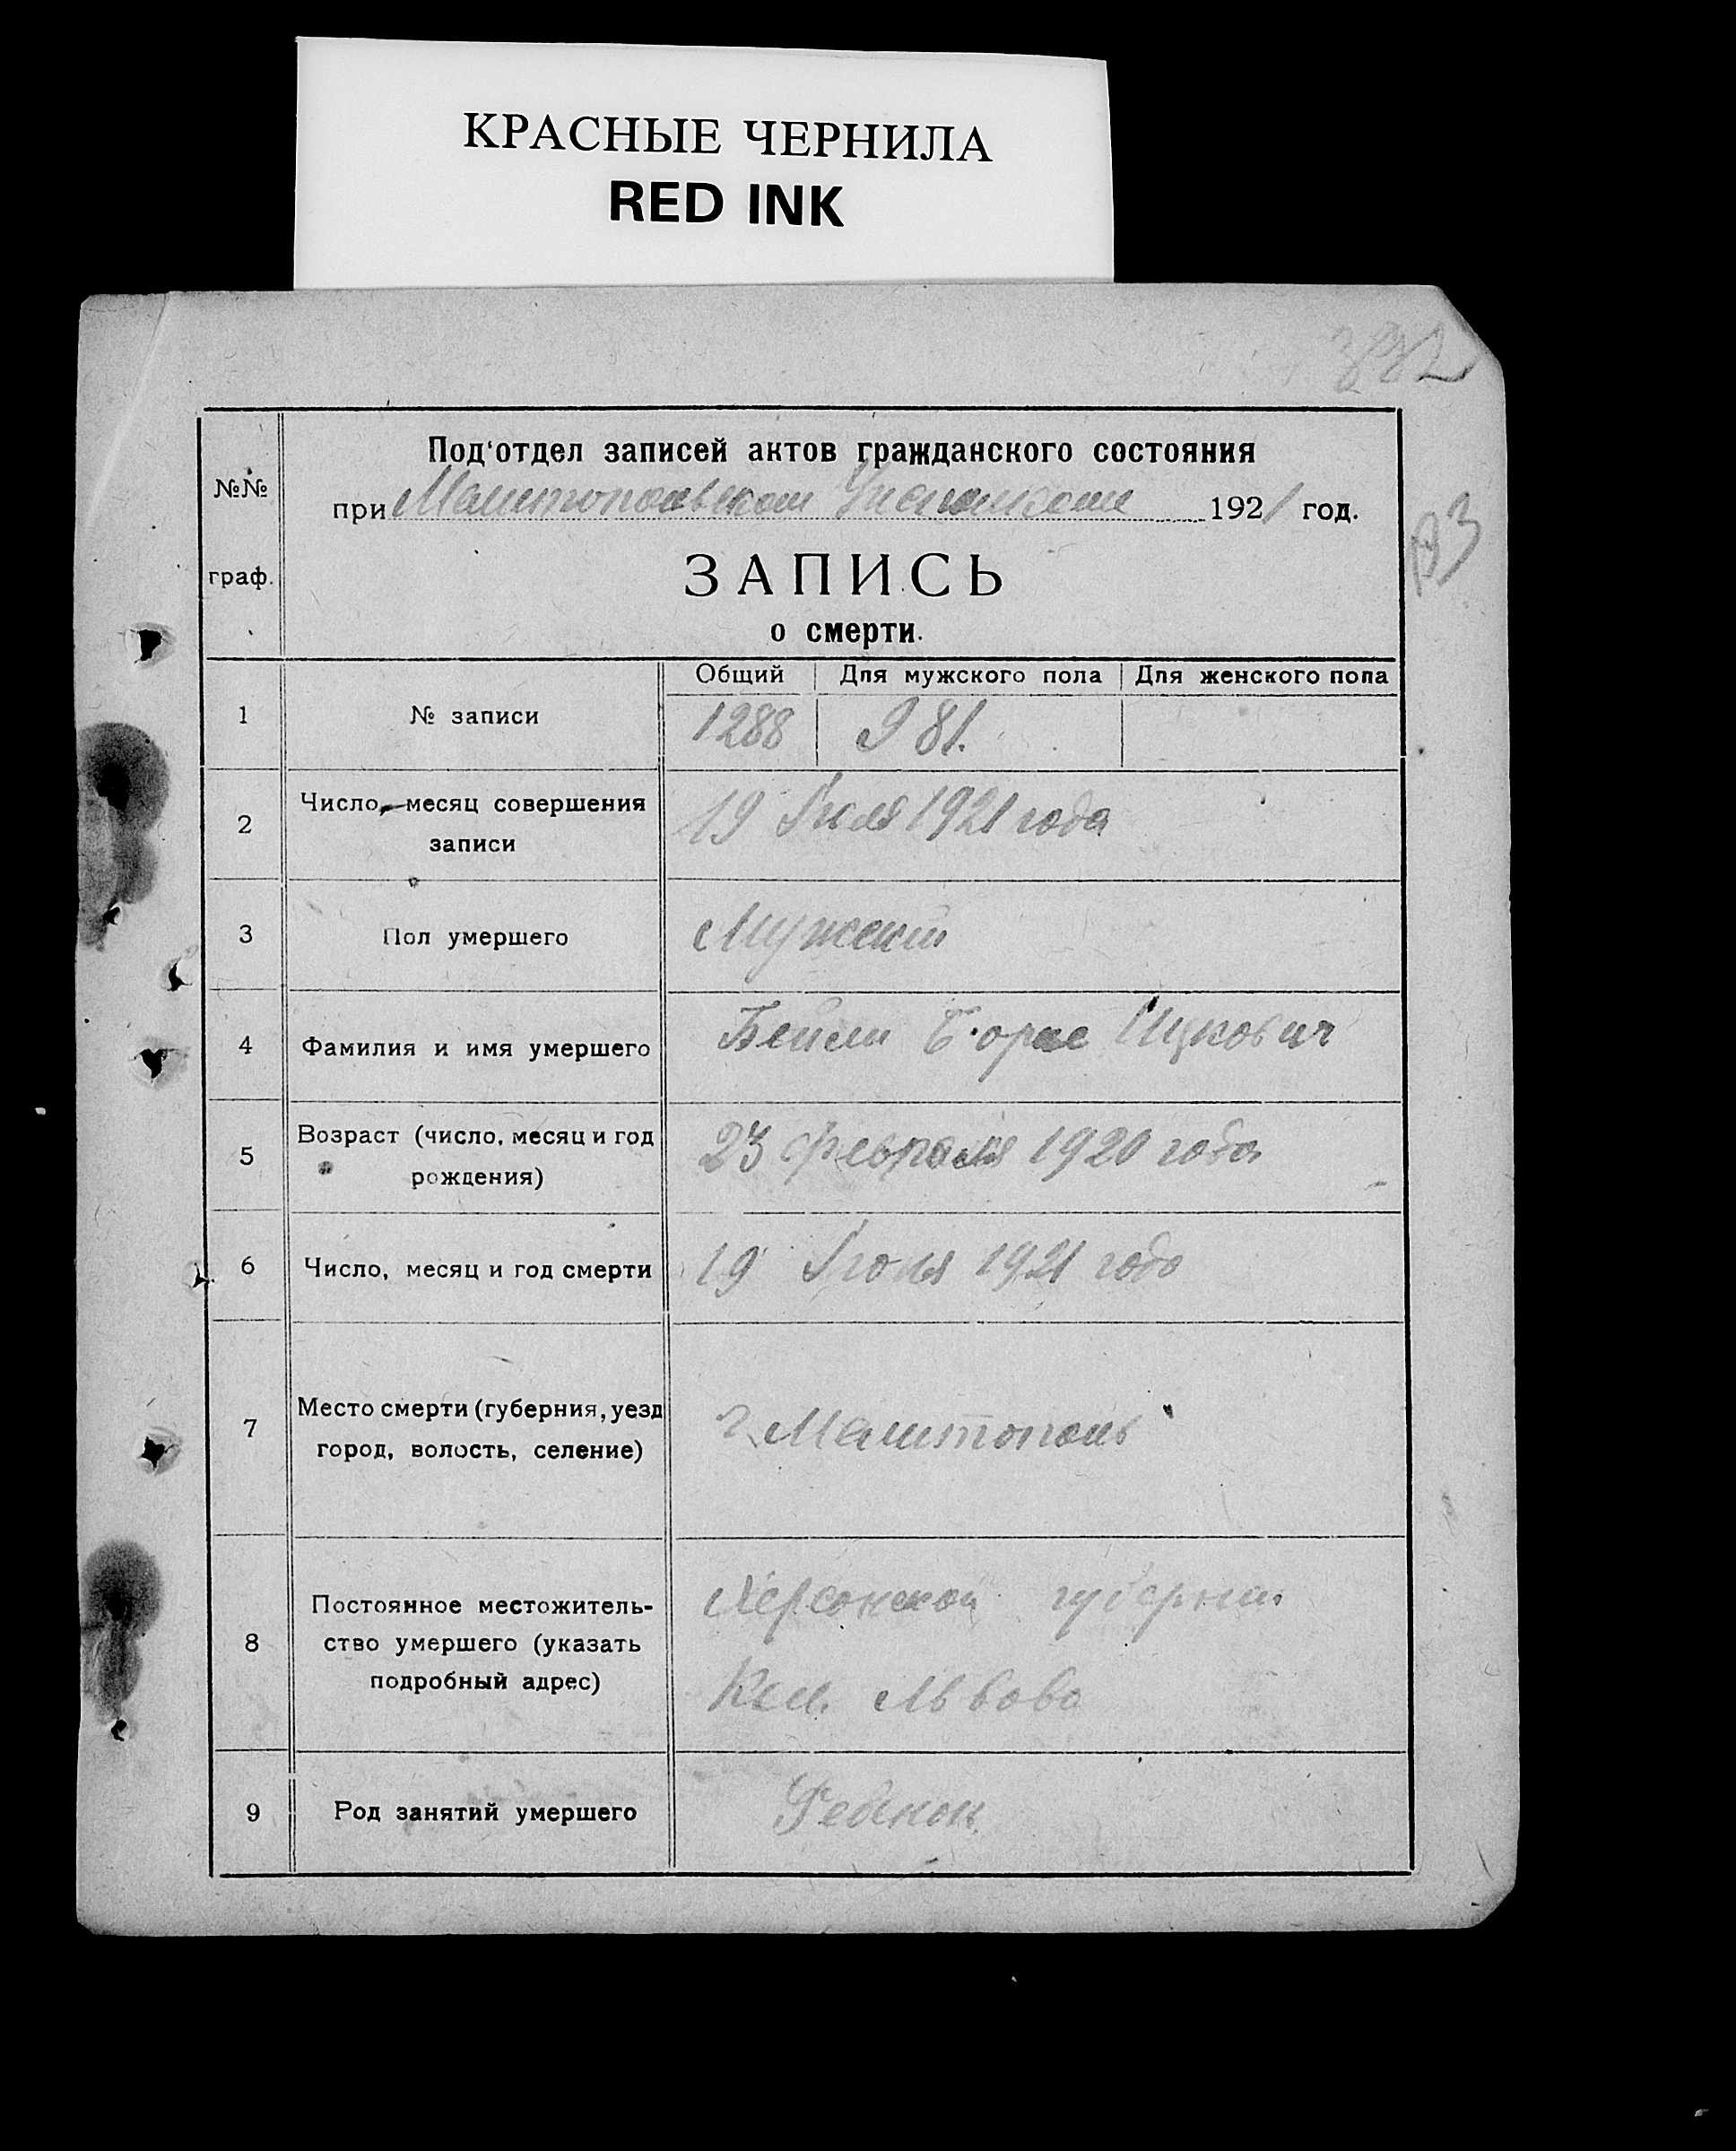 КРАСНЫЕ ЧЕРНИЛА
RED INK
Под'отдел записей актов гражданского состояния
при Мелитопольском 1921 год.
№№
граф.
ЗАПИСЬ
о смерти.
Общий Для мужского пола Для женского пола
1 № записи 1288 981.
2 Число, месяц совершения
записи
19 Июля 1921 года
3 Пол умершего Мужской
4 Фамилия и имя умершего Борис Ицкович
5 Возраст (число, месяц и год
рождения)
23 февраля 1920 года
6 Число, месяц и год смерти 19 Июля 1921 года
7 Место смерти (губерния, уезд
город, волость, селение)
г. Мелитополь
8 Постоянное местожитель-
ство умершего (указать
подробный адрес)
Херсонской губернии
Кол. Львово
9 Род занятий умершего Ребенок